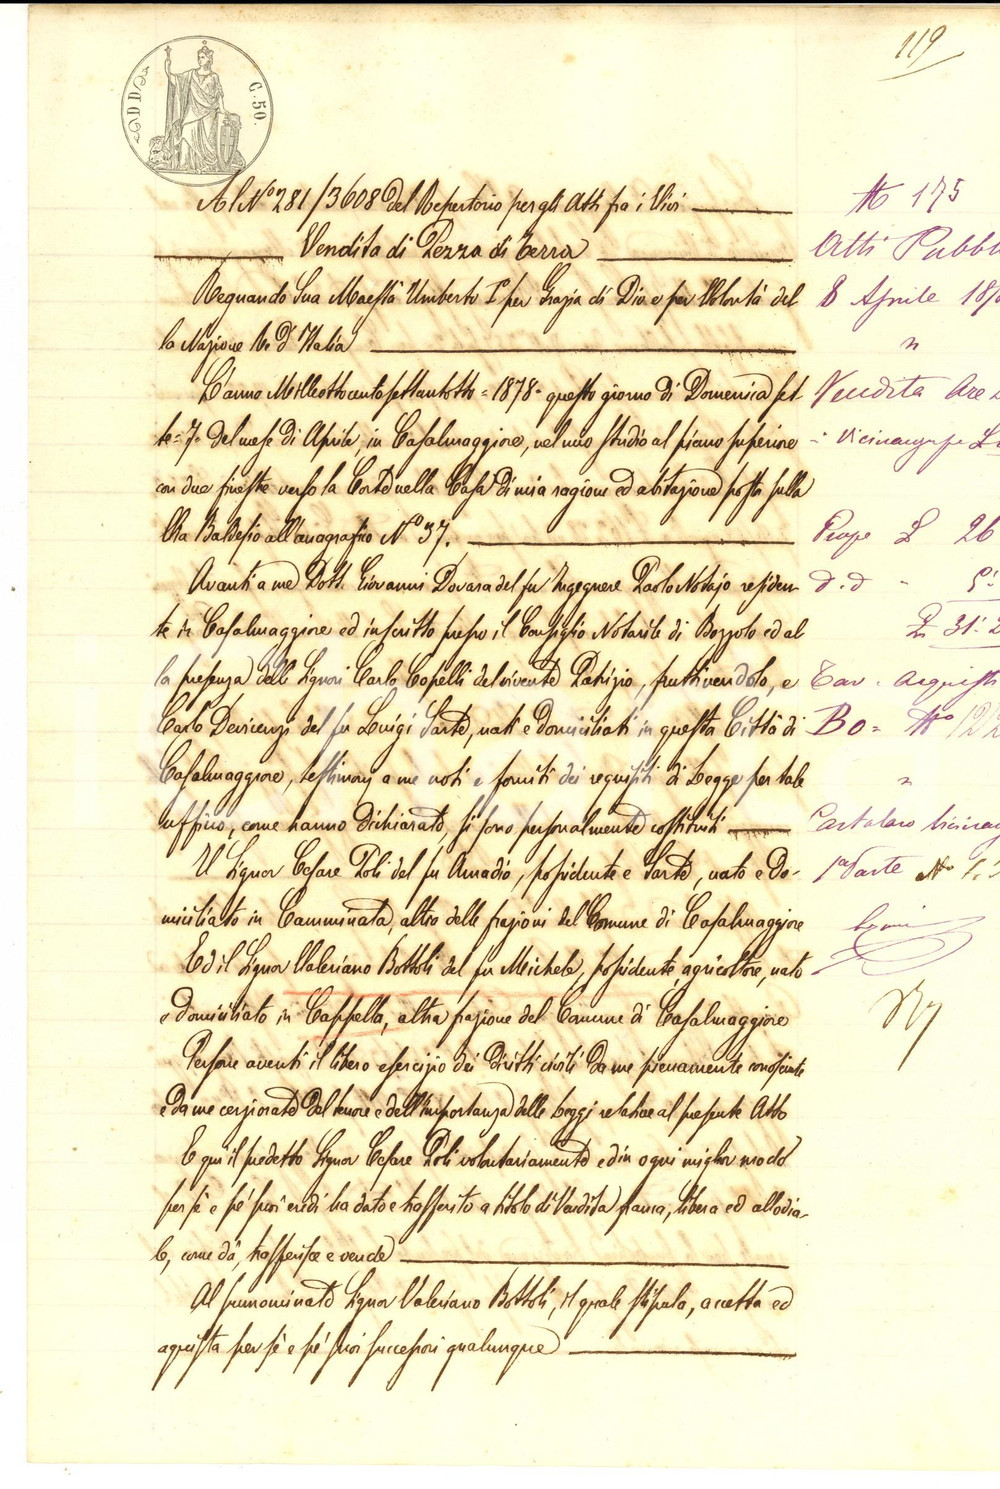 119
C. 50.
Al N.° 281/3608 del Repertorio per gli Atti fra i Vivi
Vendita di Pezza di Terra
Regnando Sua Maestà Umberto I° per Grazia di Dio e per Volontà del
la Nazione Re d'Italia
L'anno Milleottocentosettantotto = 1878 = questo giorno di Domenica set
te = 7 = del mese di Aprile, in Casalmaggiore, nel mio studio al piano superiore
con due finestre verso la Corte nella Casa di mia ragione ed abitazione posta sulla
Via Baldesio all'anagrafico N.° 37.
Avanti a me Dott. Giovanni Dovara del fu Ingegnere Paolo Notajo residen
te in Casalmaggiore ed inscritto presso il Consiglio Notarile di Bozzolo ed al
la presenza delli Signori Carlo Capelli del vivente Patrizio, fruttivendolo, e
Carlo Devicenzi del fu Luigi Sarto, nati e domiciliati in questa Città di
Casalmaggiore, testimonj a me noti e forniti dei requisiti di Legge per tale
uffizio, come hanno dichiarato, si sono personalmente costituiti
Il Signor Cesare Poli del fu Amadio, possidente e Sarto, nato e Do-
miciliato in Camminata, altro delle frazioni del Comune di Casalmaggiore
Ed il Signor Valeriano Bottoli del fu Michele, possidente, agricoltore, nato
e domiciliato in Cappella, altra frazione del Comune di Casalmaggiore
Persone aventi il libero esercizio dei diritti civili da me pienamente conosciute
e da me cerziorate del tenore e dell'importanza delle Leggi relative al presente Atto
E qui il predetto Signor Cesare Poli volontariamente ed in ogni miglior modo
per sè e pé suoi eredi ha dato e trasferito a titolo di Vendita franca, libera ed allodia-
le, come dà, trasferisce e vende
Al prenominato Signor Valeriano Bottoli, il quale stipula, accetta ed
acquista per sè e pé suoi successori qualunque
N° 175
Atti Pubbli
8 Aprile 187
"
Vendita Are
Vicinangosse
Prop L 26
d.d
31:2
Tav. Acquisti
Bo = N°
"
Cartolaro
1a Parte N°